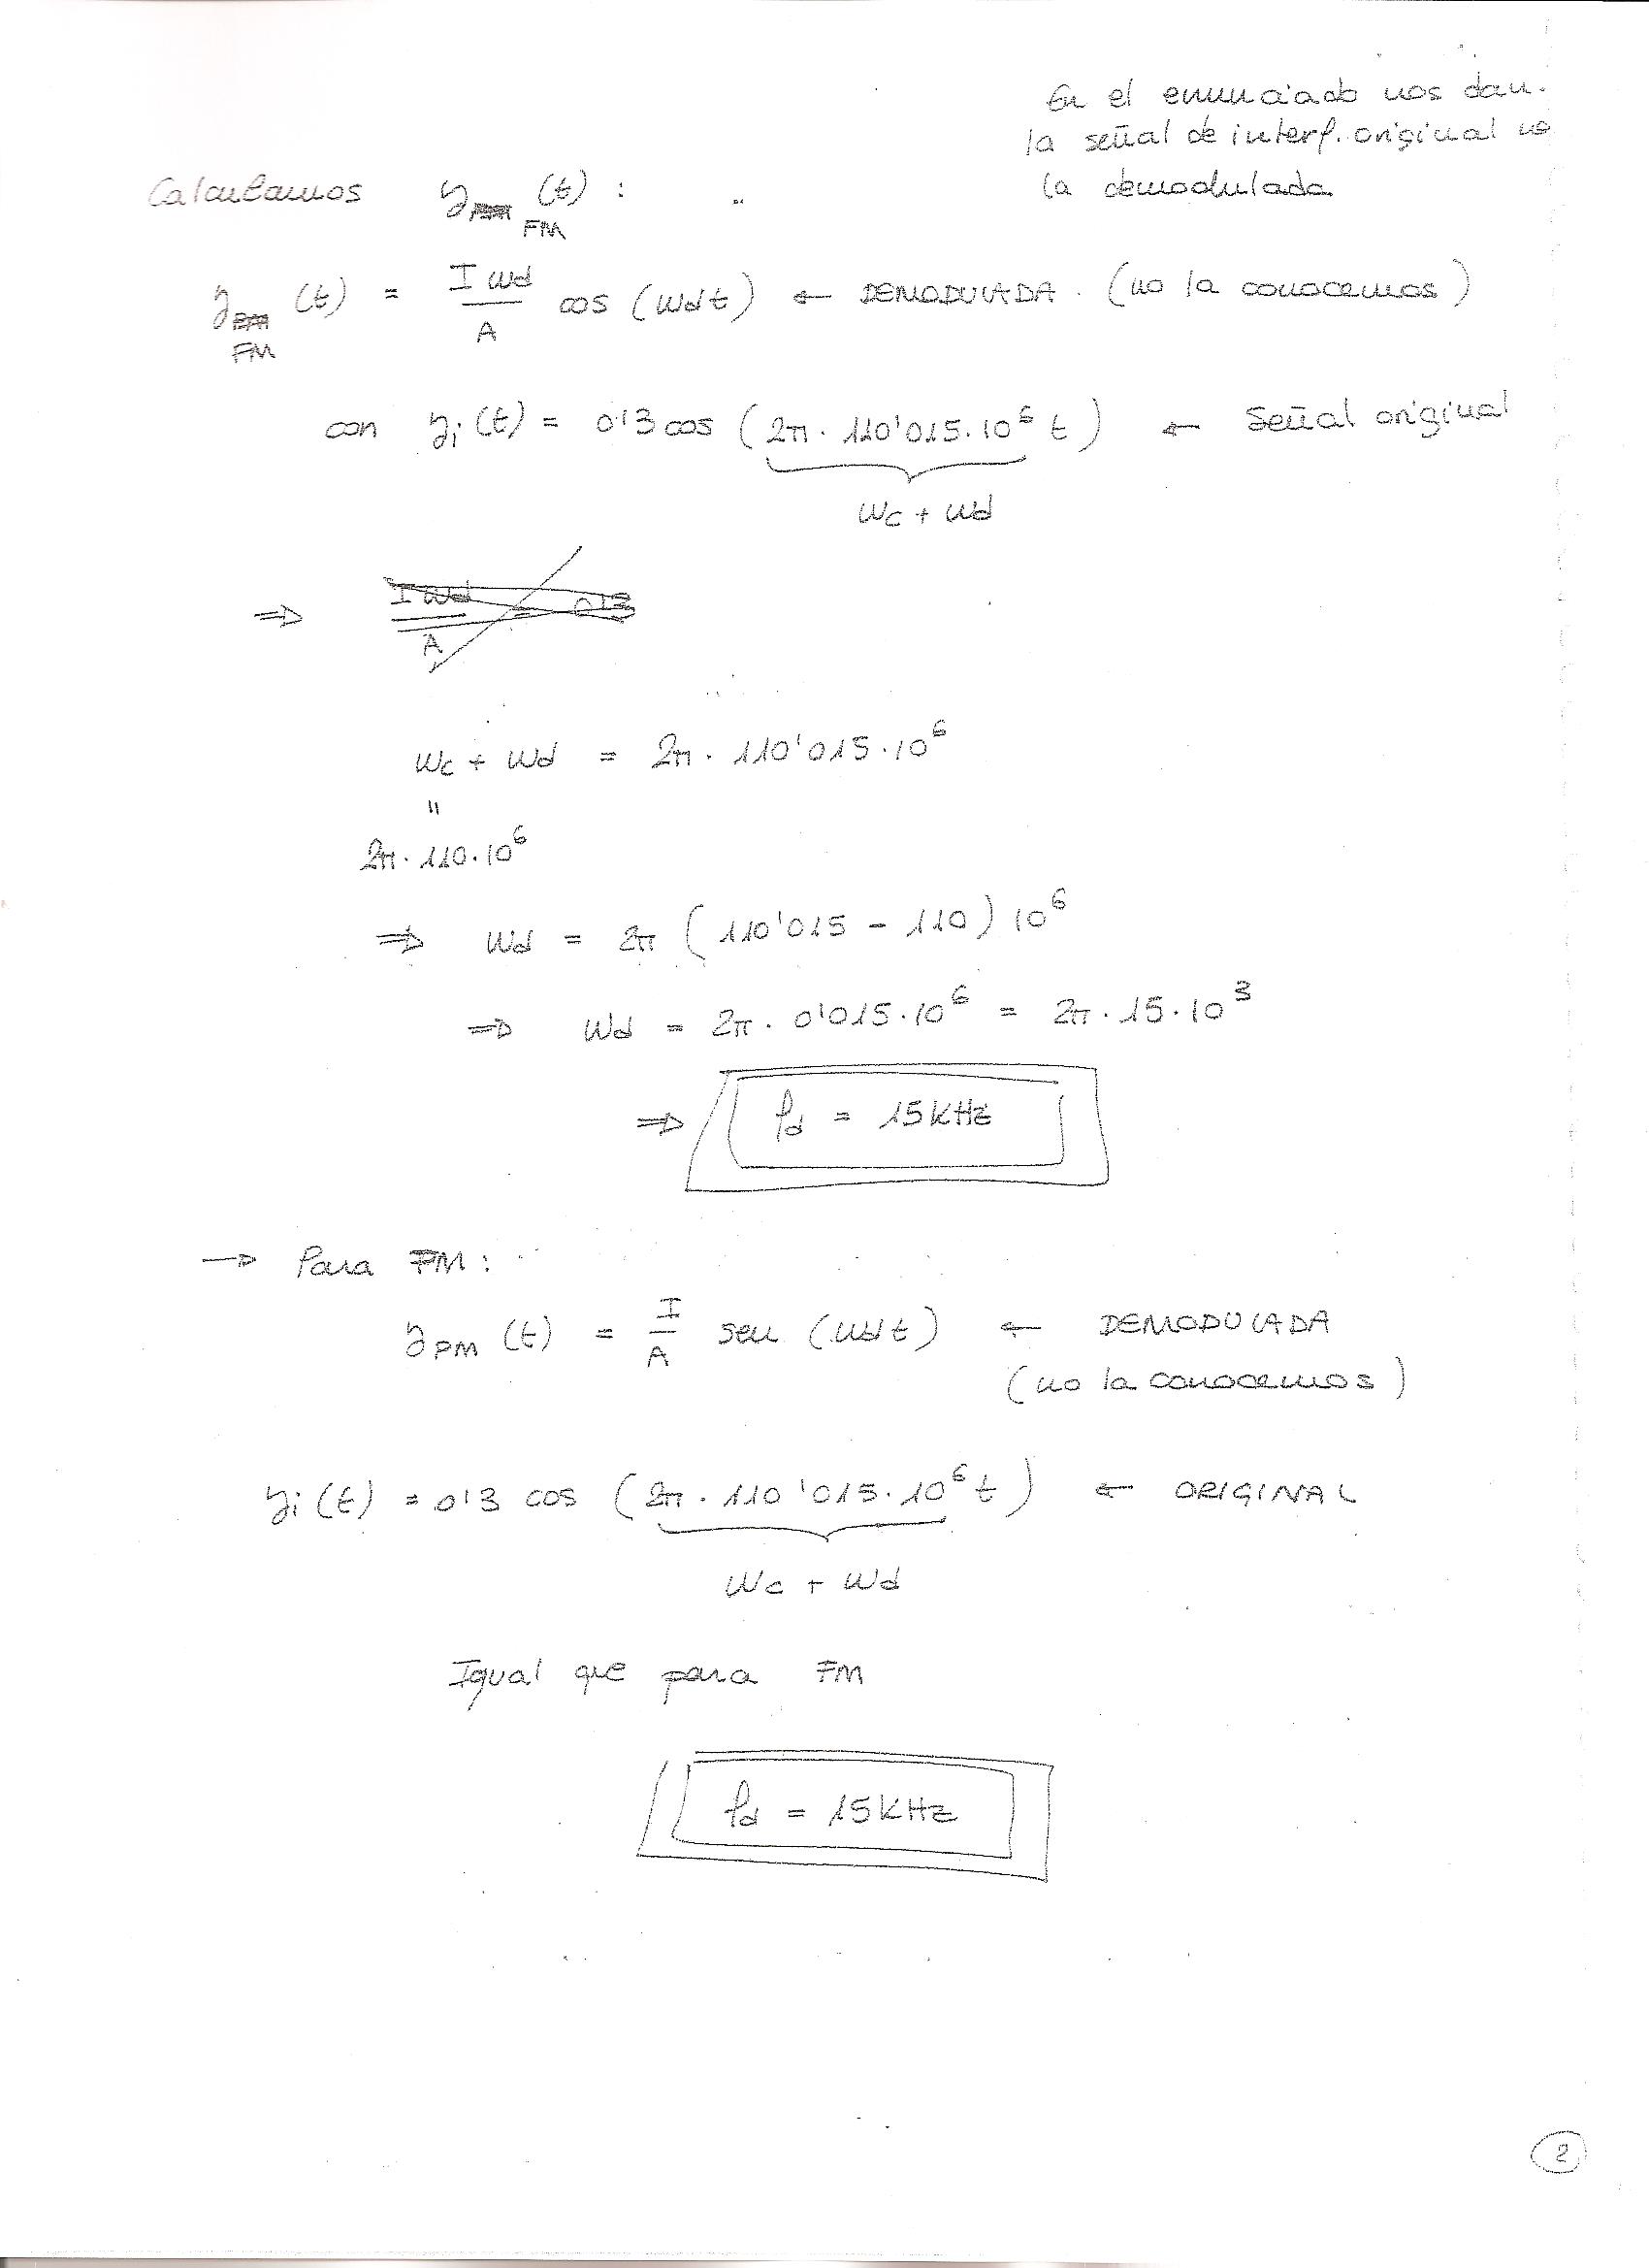 En el enunciado nos dan.
la señal de interf. original no
la demodulada
Calculamos y FM (t) :
y FM (t) = I wd / A cos (wd t) ← DEMODULADA. (no la conocemos)
con yi (t) = 0'3 cos (2π · 110'015 · 10^6 t) ← Señal original
wc + wd
⇒ I wd / A = 0'3
wc + wd = 2π · 110'015 · 10^6
"
2π · 110 · 10^6
⇒ wd = 2π (110'015 - 110) 10^6
⇒ wd = 2π · 0'015 · 10^6 = 2π · 15 · 10^3
⇒ fd = 15 KHz
→ Para PM :
y PM (t) = I / A sen (wd t) ← DEMODULADA
(no la conocemos)
yi (t) = 0'3 cos (2π · 110'015 · 10^6 t) ← ORIGINAL
wc + wd
Igual que para FM
fd = 15 KHz
2